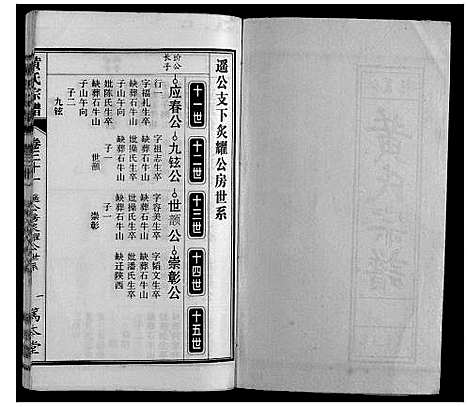 遥公支下炙耀公房世系
十一世
十二世
十三世
十四世
十五世
玠公长子
应春公
九铉公
世颢公
崇彰公
行一
字福礼生卒
缺葬石牛山
子山午向
妣陈氏生卒
缺葬石牛山
子山午向
子二
九铉
字祖志生卒
缺葬石牛山
妣操氏生卒
缺葬石牛山
子一
世颢
字容美生卒
缺葬石牛山
妣操氏生卒
缺葬石牛山
子一
崇彰
字韬文生卒
缺葬石牛山
妣潘氏生卒
缺迁陕西
黄氏宗谱
卷三十一
一
笃本堂